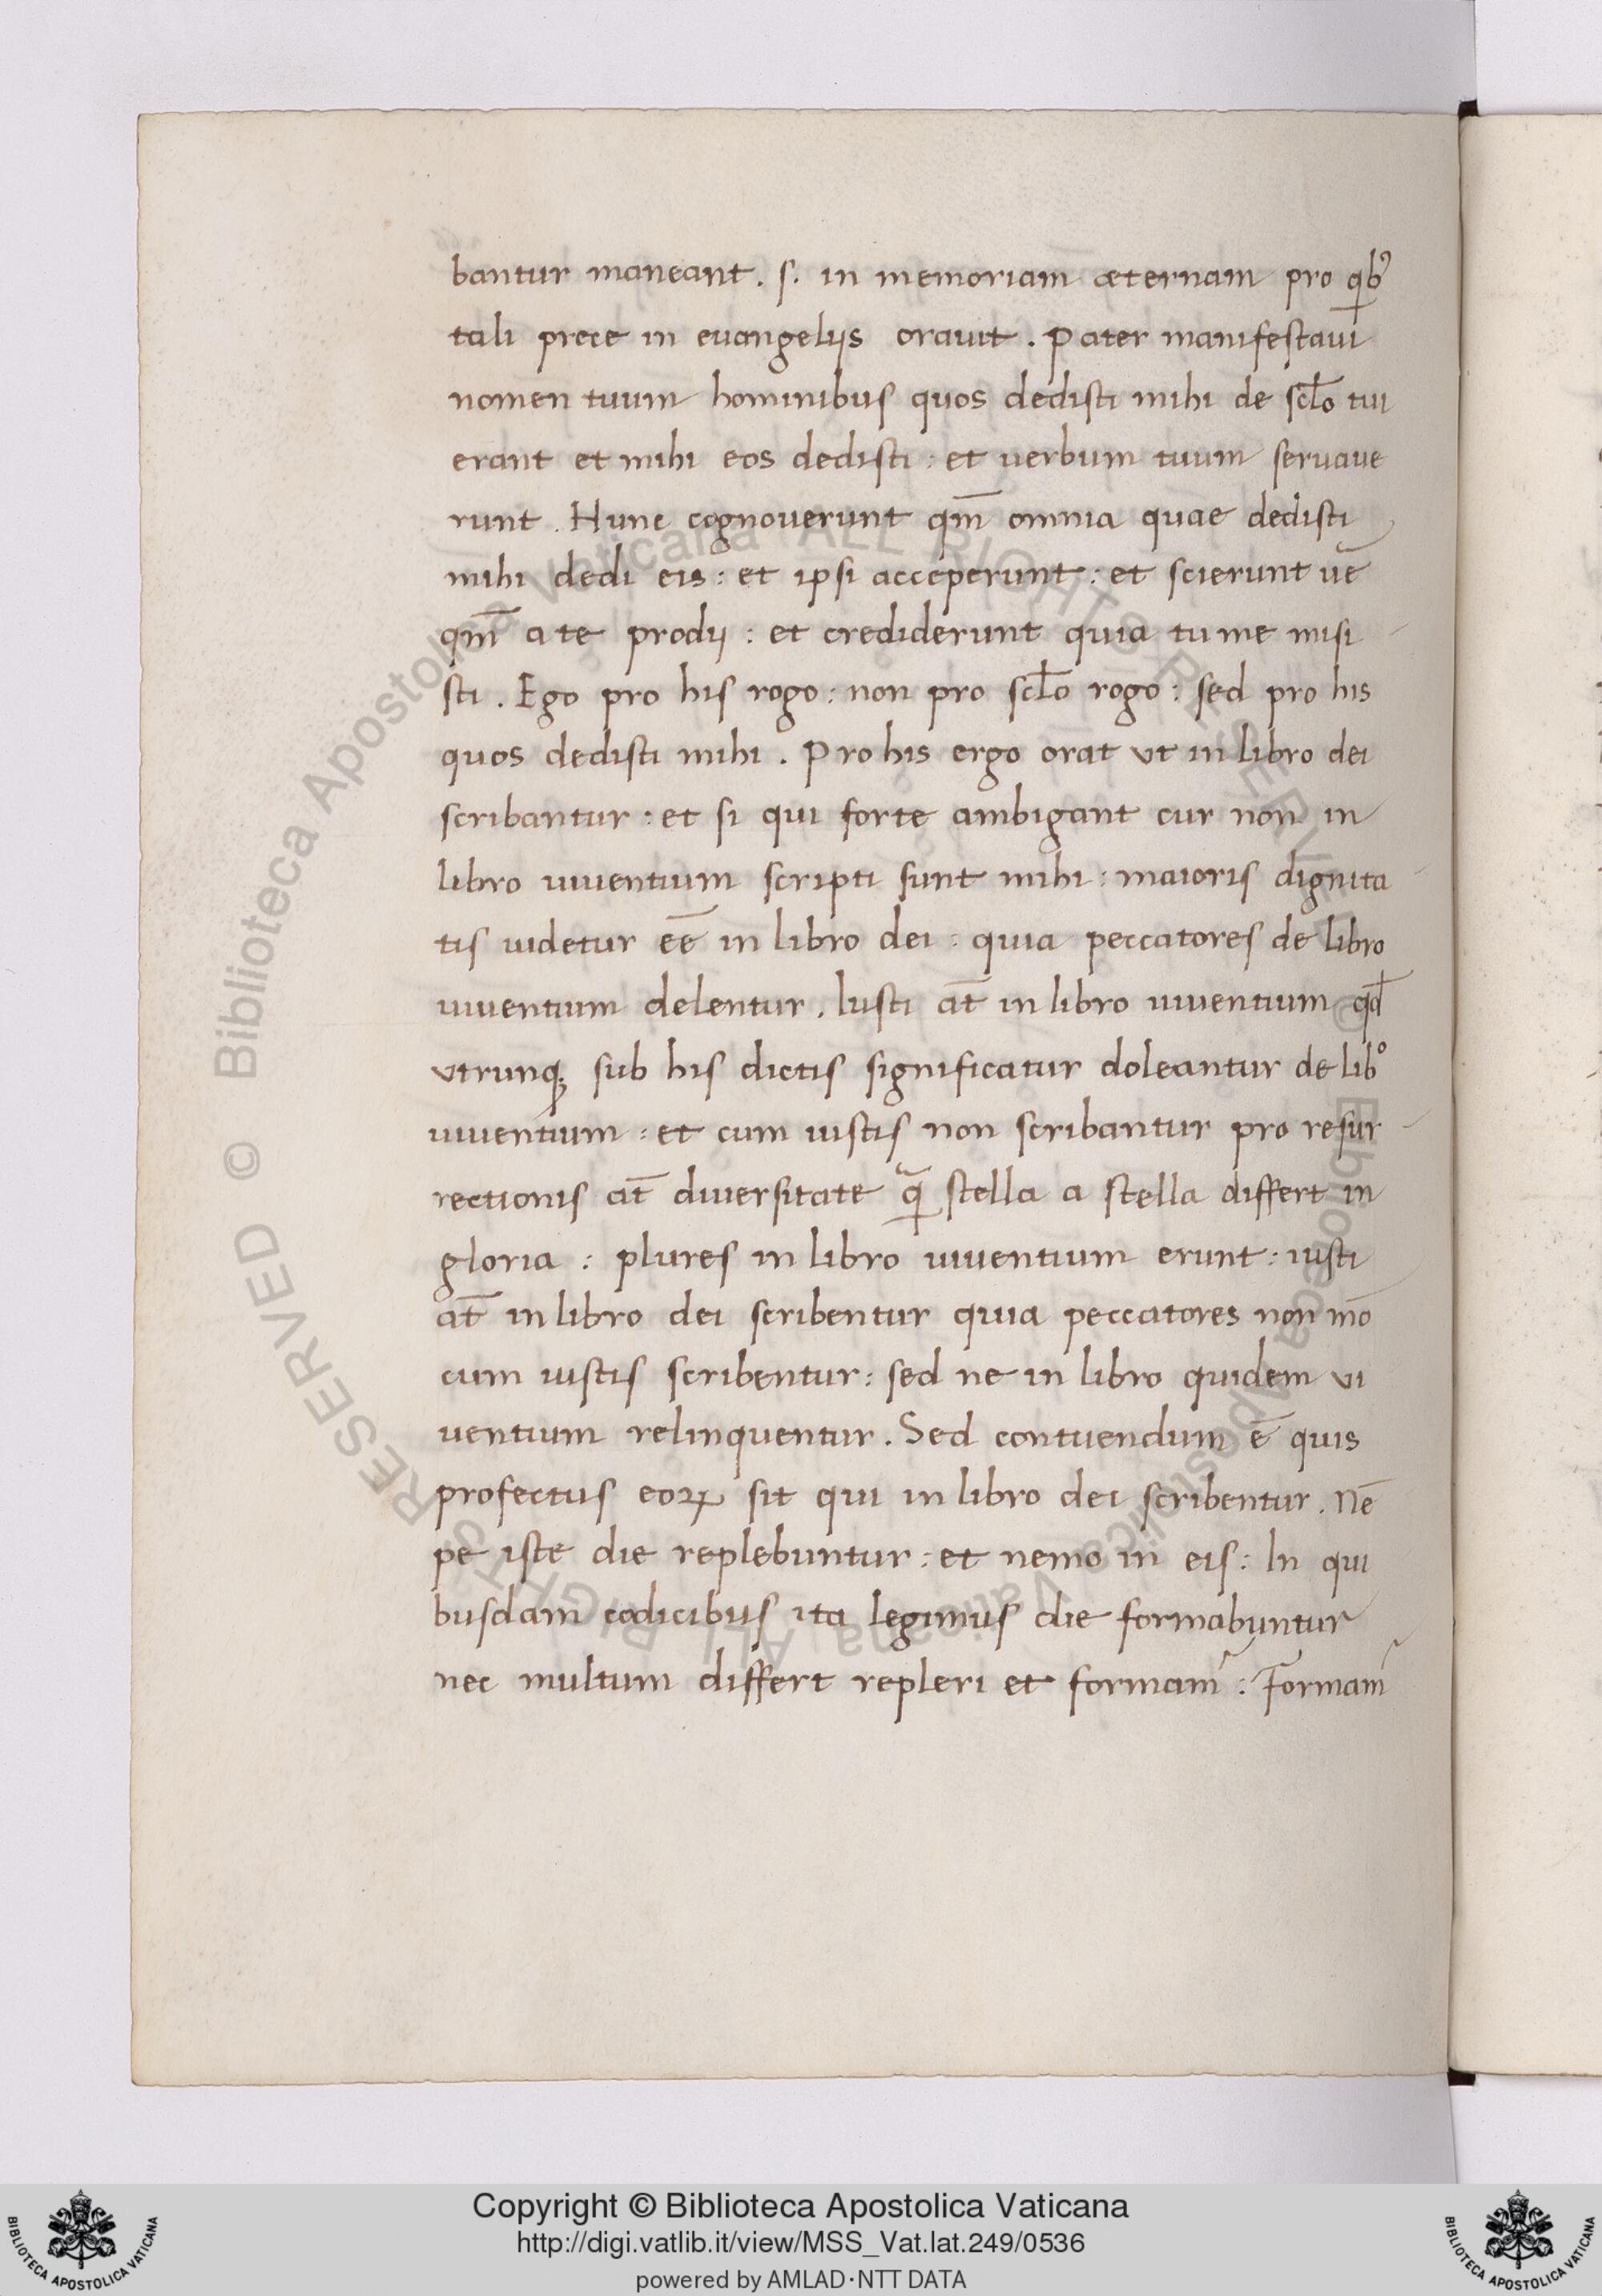 bantur maneant. s. in memoriam æternam pro qb᾽
tali prece in euangeliis orauit. Pater manifestaui
nomen tuum hominibus quos dedisti mihi de scl̄o tui
erant et mihi eos dedisti: et uerbum tuum seruaue
runt. Hunc cognouerunt qm̄ omnia quae dedisti
mihi dedi eis: et ipsi acceperunt: et scierunt ue̅
qm̄ a te prodij: et crediderunt quia tu me misi
sti. Ego pro his rogo: non pro scl̄o rogo: sed pro his
quos dedisti mihi. Pro his ergo orat vt in libro dei
scribantur: et si qui forte ambigant cur non in
libro uiuentium scripti sunt mihi: maioris dignita
tis uidetur ee̅ in libro dei: quia peccatores de libro
uiuentium delentur. Iusti at̄ in libro uiuentium qđ
vtrunq; sub his dictis significatur doleantur de lib°
uiuentium: et cum iustis non scribantur pro resur
rectionis at̄ diuersitate q̄ stella a stella differt in
gloria: plures in libro uiuentium erunt: iusti
at̄ in libro dei scribentur quia peccatores non mō
cum iustis scribentur: sed ne in libro quidem vi
uentium relinquentur. Sed contuendum ē quis
profectus eoꝝ sit qui in libro dei scribentur. Nē
pe iste die replebuntur: et nemo in eis: In qui
busdam codicibus ita legimus die formabuntur
nec multum differt repleri et formam᾽: Formam᾽
© Biblioteca Apostolica Vaticana ALL RIGHTS RESERVED
© Biblioteca Apostolica Vaticana ALL RIGHTS RESERVED
Copyright © Biblioteca Apostolica Vaticana
http://digi.vatlib.it/view/MSS_Vat.lat.249/0536
powered by AMLAD·NTT DATA
BIBLIOTECA APOSTOLICA VATICANA
BIBLIOTECA APOSTOLICA VATICANA